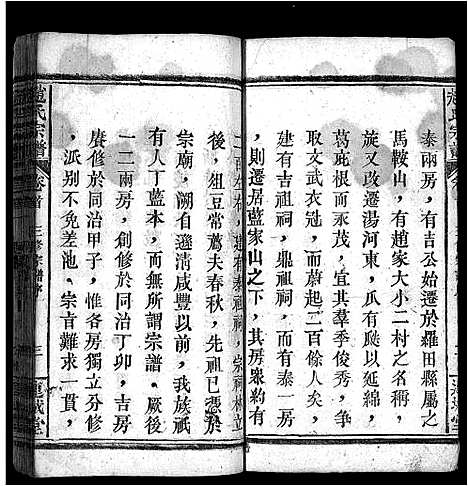 泰兩房，有吉公始遷於羅田縣屬之
馬鞍山，有趙家大小二村之名稱，
旋又改遷湯河東，瓜瓞以延綿，
葛庇椽以發榮，宜其羣季俊秀，
取文武衣冠，而蔚起二百餘人矣，
建有吉祖祠，鼎祖祠，而有泰一房
，則遷居藍家山之下，其房衆約有
建有泰祖祠，宗祠林立
後，俎豆常薦夫春秋，先祖已憑於
宗廟，溯自遜清咸豐以前，我族祇
有人丁藍本，而無所謂宗譜，厥後
一二兩房，創修於同治丁卯，吉房
賡修於同治甲子，惟各房獨立分修
，派别不免差池，宗旨難求一貫，
趙氏宗譜
卷首
三修宗譜序
三